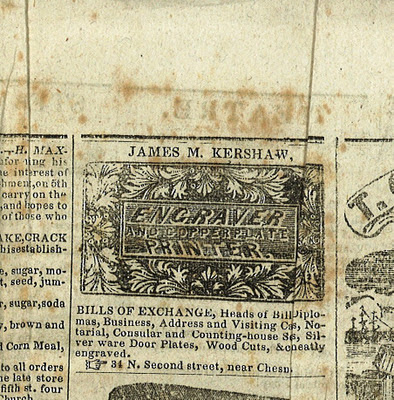 .—H. MAX-
his
e interest of
hment, on 5th
carry on the
, and hopes to
of those who
AKE, CRACK
his establish-
e, sugar, mo-
t, seed, jum-
r, sugar, soda
y, brown and
d Corn Meal,
to all orders
he late store
fifth st. four
Church
JAMES M. KERSHAW,
ENGRAVER
AND COPPERPLATE
PRINTER.
BILLS OF EXCHANGE, Heads of Bill Diplo-
mas, Business, Address and Visiting Cas, No-
tarial, Consular and Counting-house Ses, Sil-
ver ware Door Plates, Wood Cuts, &c neatly
engraved.
☞ 34 N. Second street, near Chesn.